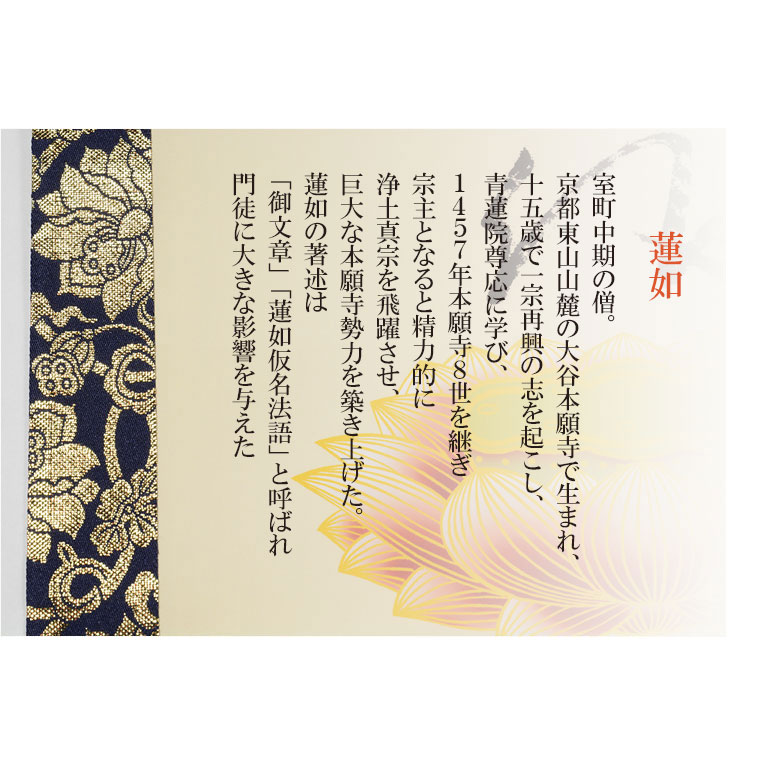 蓮如
室町中期の僧。
京都東山山麓の大谷本願寺で生まれ、
十五歳で一宗再興の志を起こし、
青蓮院尊応に学び、
1457年本願寺8世を継ぎ
宗主となると精力的に
浄土真宗を飛躍させ、
巨大な本願寺勢力を築き上げた。
蓮如の著述は
「御文章」「蓮如仮名法語」と呼ばれ
門徒に大きな影響を与えた